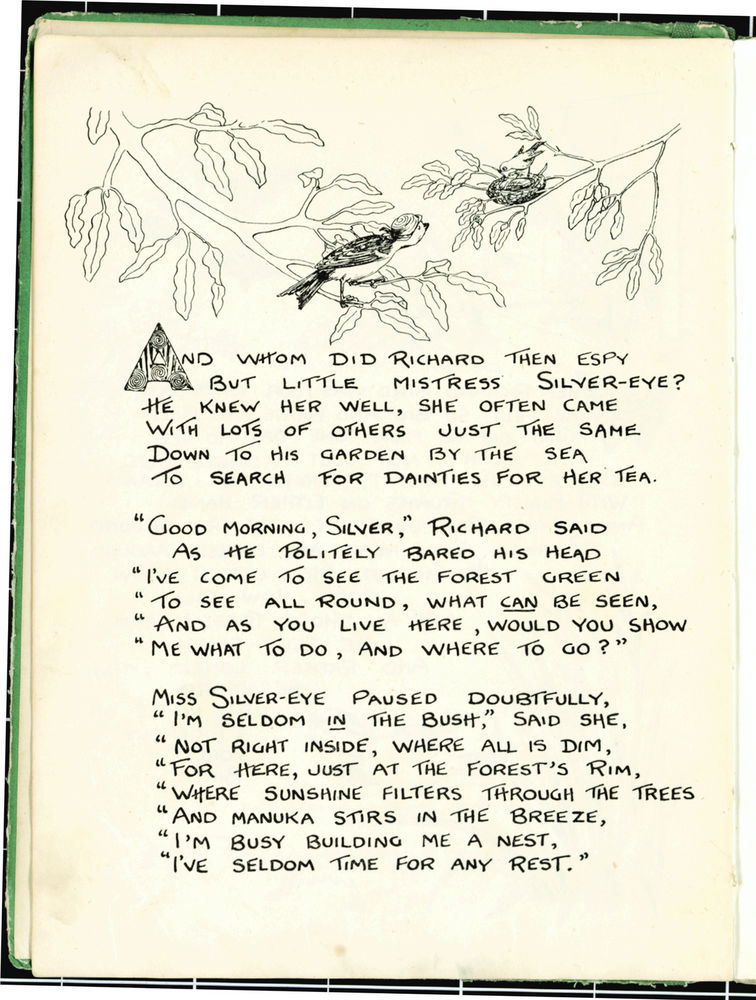 AND WHOM DID RICHARD THEN ESPY
BUT LITTLE MISTRESS SILVER-EYE?
HE KNEW HER WELL, SHE OFTEN CAME
WITH LOTS OF OTHERS JUST THE SAME
DOWN TO HIS GARDEN BY THE SEA
TO SEARCH FOR DAINTIES FOR HER TEA.
"GOOD MORNING, SILVER," RICHARD SAID
AS HE POLITELY BARED HIS HEAD
"I'VE COME TO SEE THE FOREST GREEN
"TO SEE ALL ROUND, WHAT CAN BE SEEN,
"AND AS YOU LIVE HERE, WOULD YOU SHOW
"ME WHAT TO DO, AND WHERE TO GO?"
MISS SILVER-EYE PAUSED DOUBTFULLY,
"I'M SELDOM IN THE BUSH," SAID SHE,
"NOT RIGHT INSIDE, WHERE ALL IS DIM,
"FOR HERE, JUST AT THE FOREST'S RIM,
"WHERE SUNSHINE FILTERS THROUGH THE TREES
"AND MANUKA STIRS IN THE BREEZE,
"I'M BUSY BUILDING ME A NEST,
"I'VE SELDOM TIME FOR ANY REST."